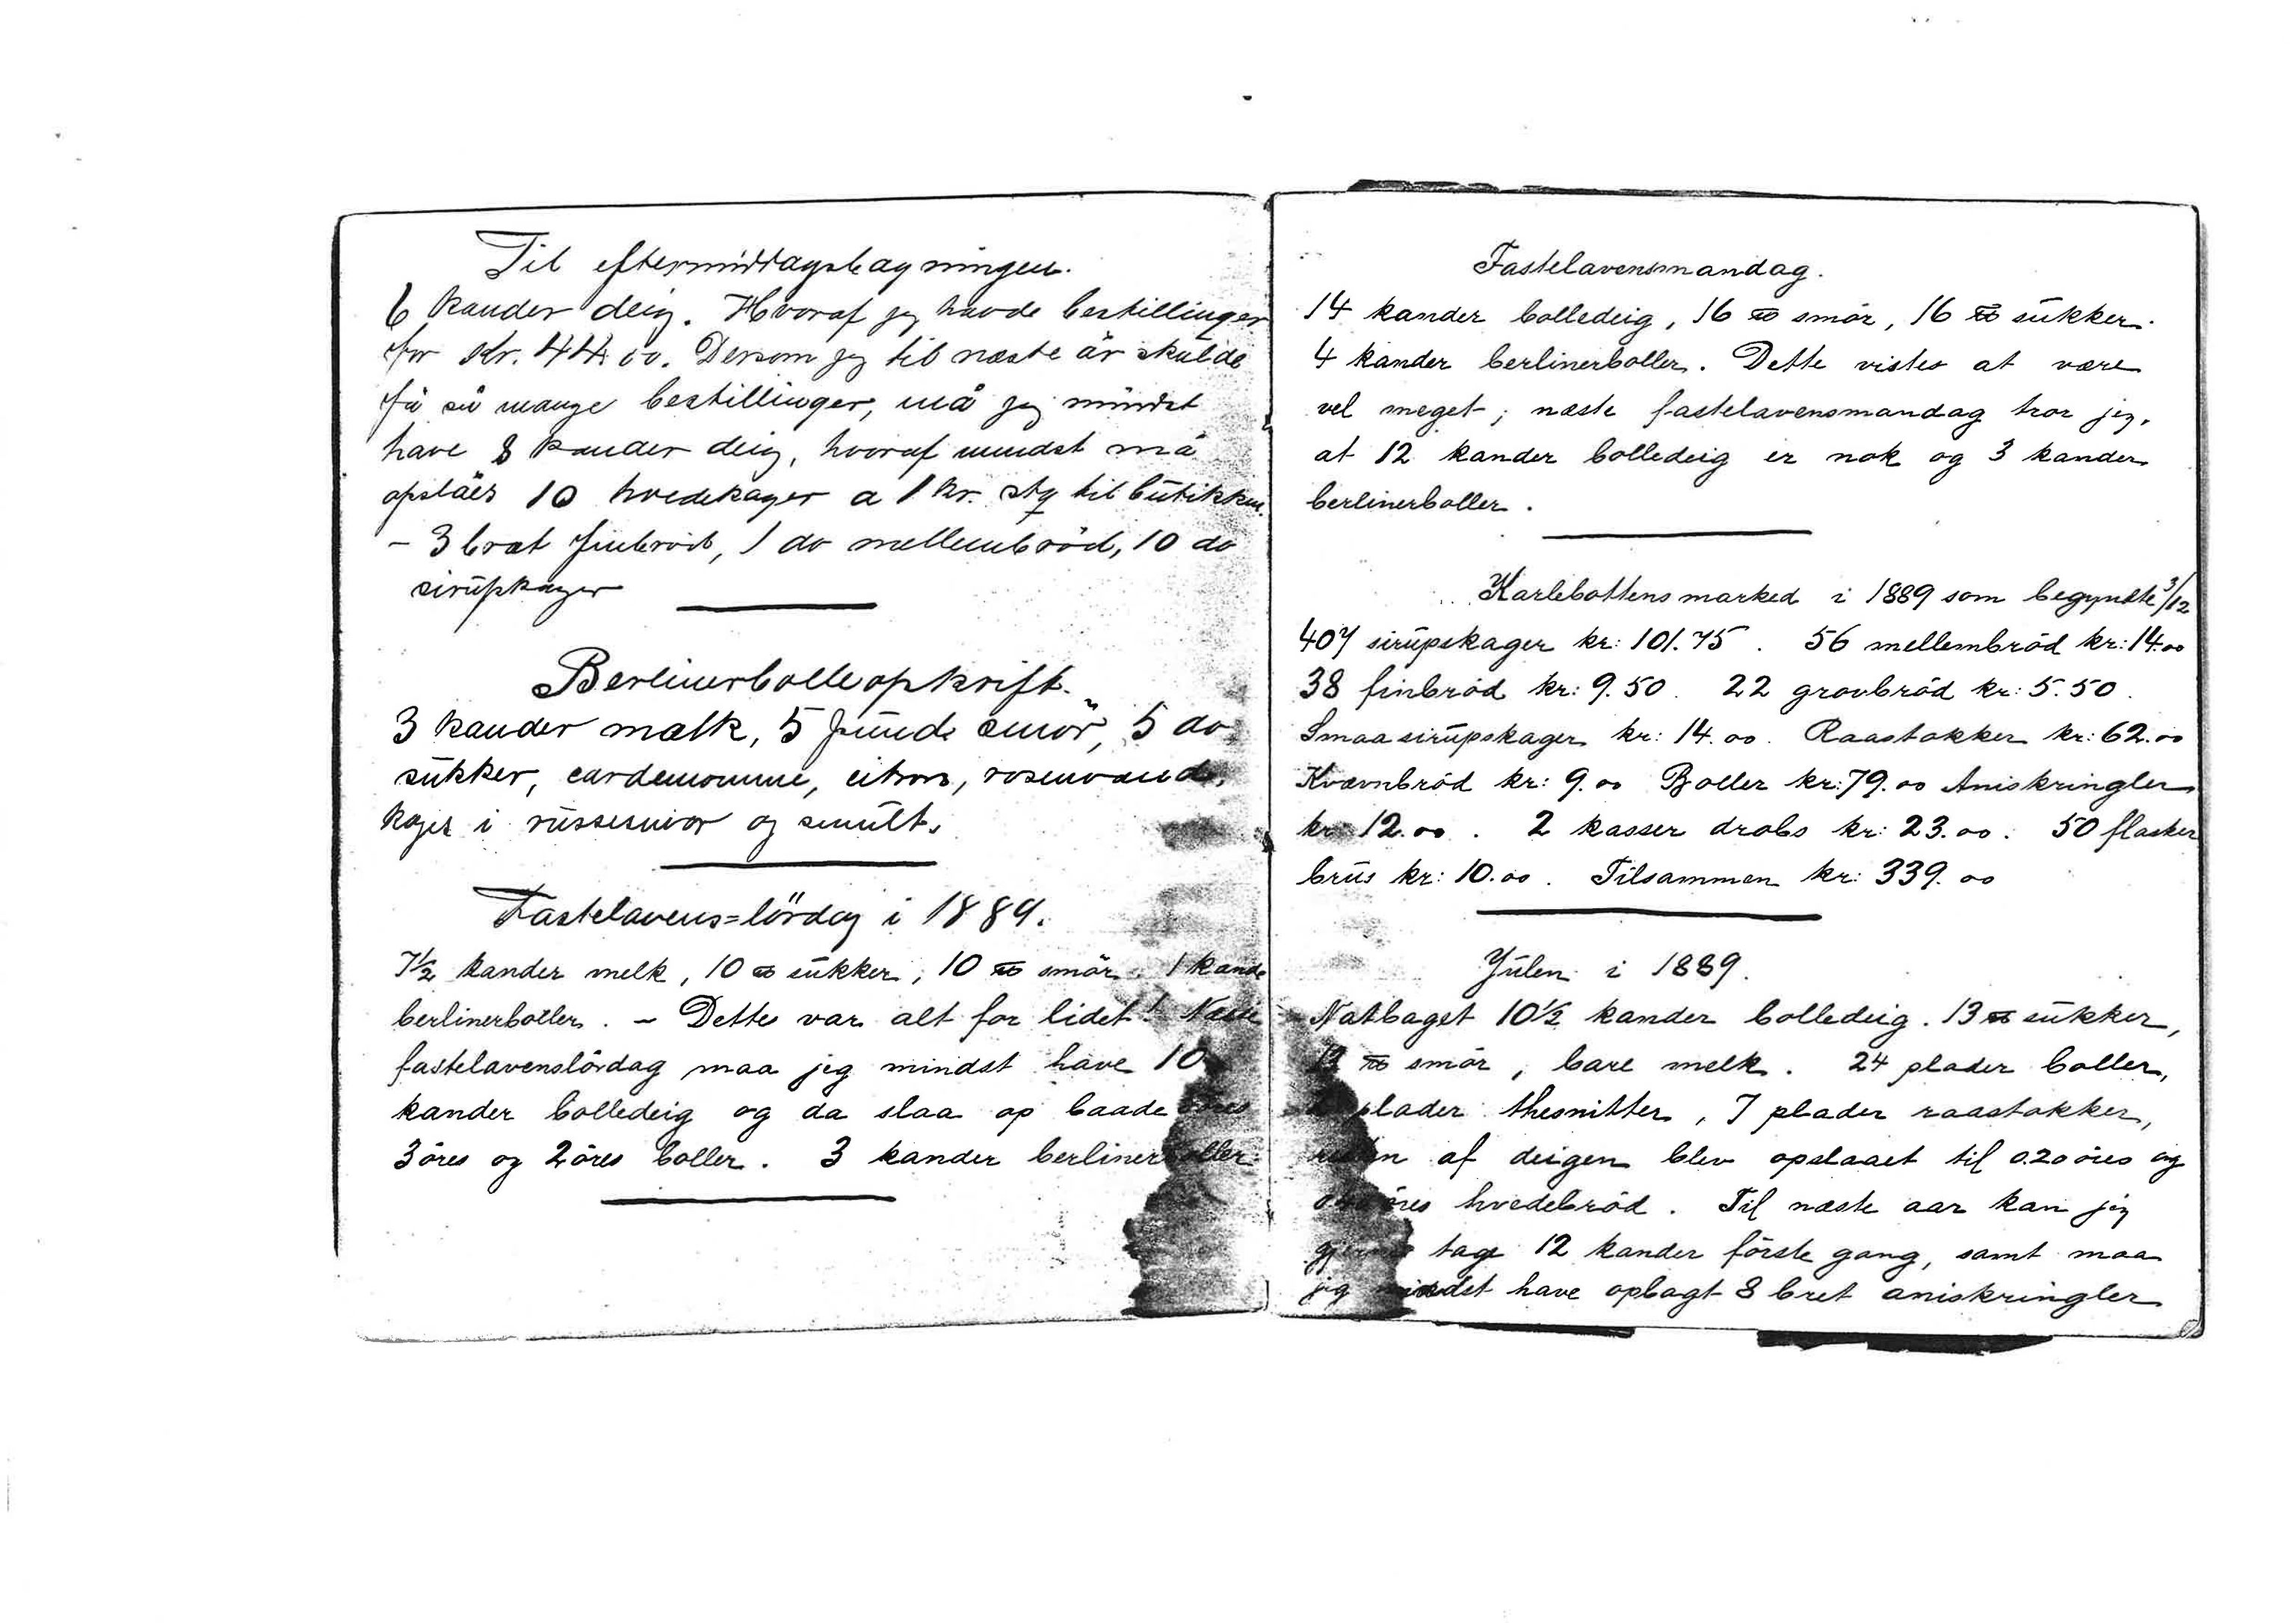 Til eftermiddagsbagningen.
6 kander deig. Hvoraf jeg havde bestillinger
for Kr. 44.00. Dersom jeg til næste år skulde
få så mange bestillinger, må jeg mindst
have 8 kander deig, hvoraf mindst må
opslåes 10 hvedekager a 1 kr. stq til butikken.
- 3 bræt finbröd, 1 do mellembröd, 10 do
sirupkager
Berlinerbolleopkrift.
3 kander mælk, 5 punds smör, 5 do
sukker, cardemomme, citron, rosenvand,
koges i russesmör og smult.
Fastelavens=lördag i 1889.
7½ kander melk, 10 ℔ sukker, 10 ℔ smör. 1 kande
berlinerboller. - Dette var alt for lidet! Næste
fastelavenslördag maa jeg mindst have 10
kander bolledeig og da slaa op baade
3 öres og 2 öres boller. 3 kander berlinerboller.
Fastelavensmandag.
14 kander bolledeig, 16 ℔ smör, 16 ℔ sukker.
4 kander berlinerboller. Dette vistes at være
vel meget; næste fastelavensmandag tror jeg,
at 12 kander bolledeig er nok og 3 kander
berlinerboller.
Karlebottens marked i 1889 som begyndte 3/12
407 sirupskager kr: 101.75. 56 mellembröd kr: 14.00
38 finbröd kr: 9.50. 22 grovbröd kr: 5.50.
Smaa sirupskager kr: 14.00. Raastakker kr: 62.00
Kvævnbröd kr: 9.00 Boller kr: 79.00 Aniskringler
kr: 12.00. 2 kasser drobs kr: 23.00. 50 flasker
brus kr: 10.00. Tilsammen kr: 339.00
Julen i 1889.
Natbaget 10½ kander bolledeig. 13 ℔ sukker,
℔ smör, bare melk. 24 plader boller,
plader thesnitter, 7 plader raastakker,
resten af deigen blev opslaaet til 0.20 öres og
öres hvedebröd. Til næste aar kan jeg
gjerne tage 12 kander förste gang, samt maa
jeg mindst have opbagt 8 bret aniskringler